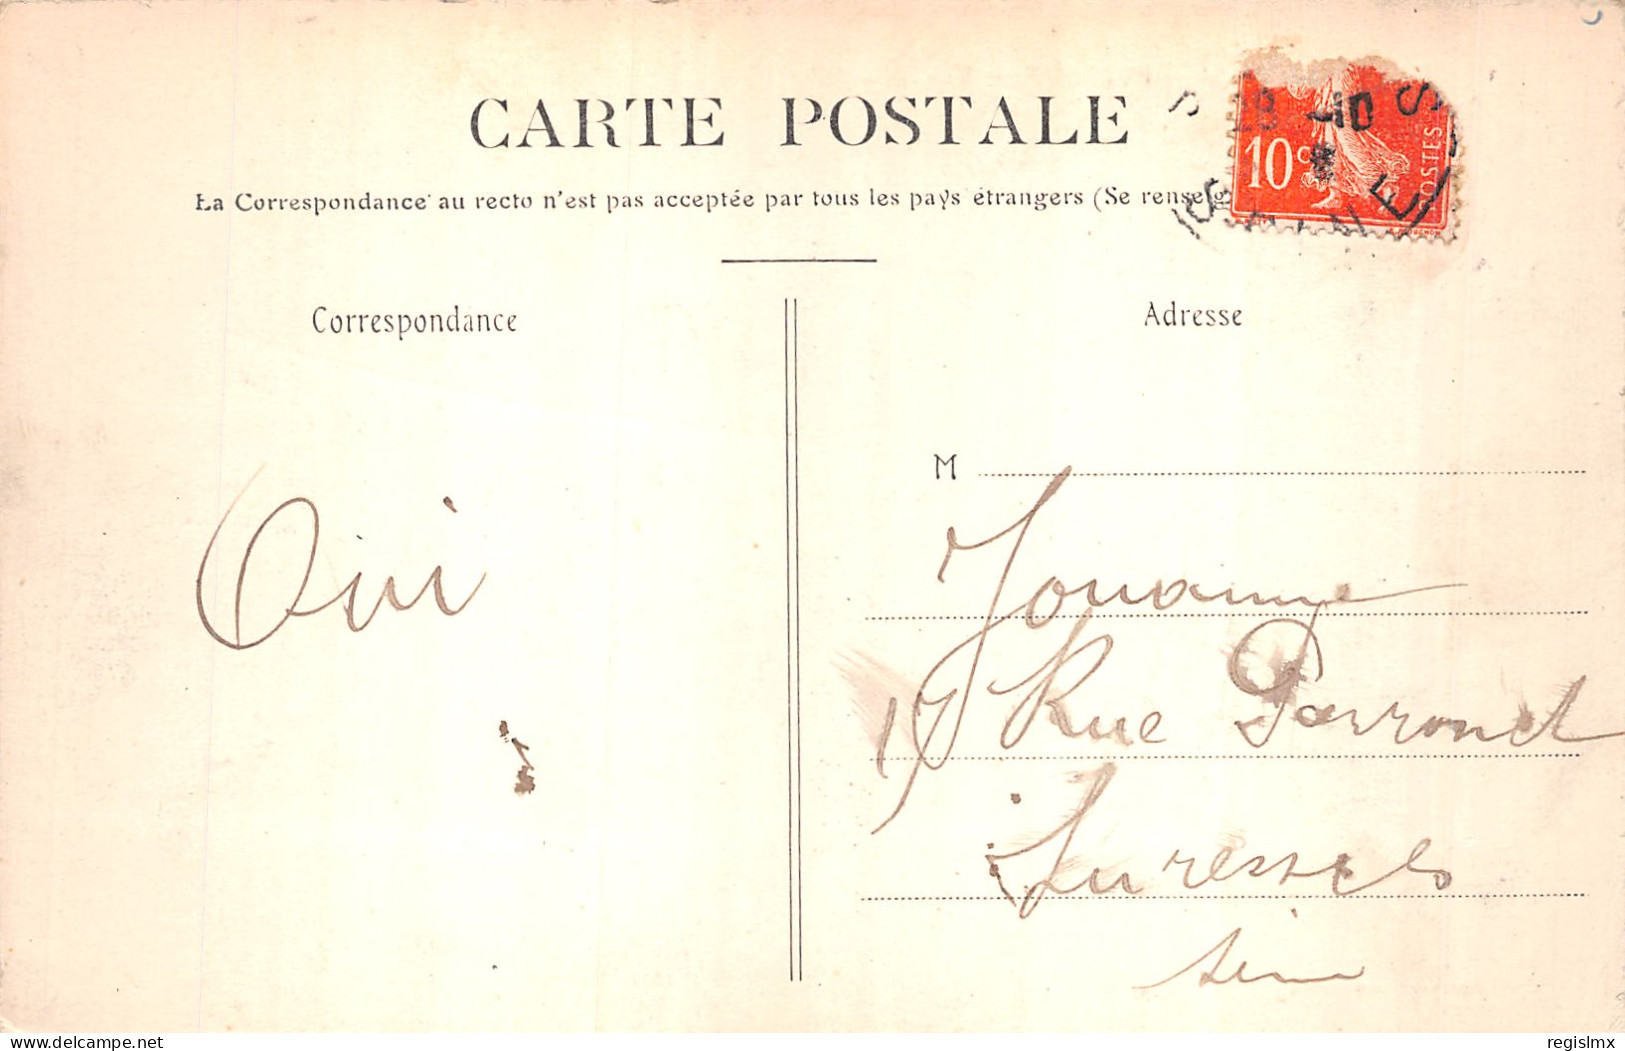 CARTE POSTALE
La Correspondance au recto n'est pas acceptée par tous les pays étrangers (Se renseig
10c
POSTES
Correspondance
Adresse
Oui
M
17 Rue
Suresnes
Seine
delcampe.net
regislmx